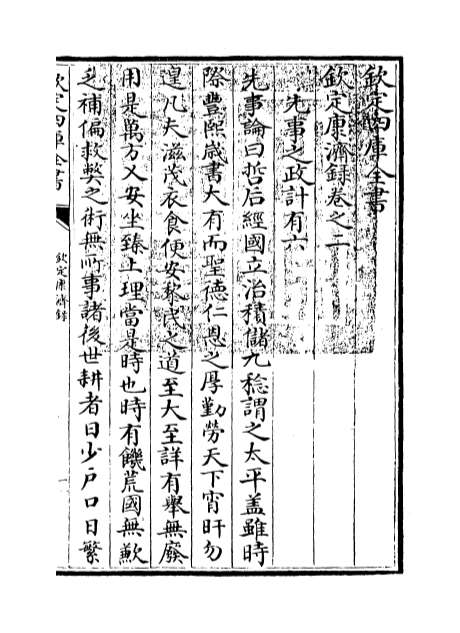 欽定四庫全書
欽定康濟録卷之二
先事之政計有六
先事論曰哲后經國立治積儲九稔謂之太平盖雖時
際豐熙歲書大有而聖德仁恩之厚勤勞天下宵旰勿
遑凡夫滋茂衣食便安黎庶之道至大至詳有舉無廢
用是萬方乂安坐臻上理當是時也時有饑荒國無歉
乏補偏救獘之術無所事諸後世耕者日少戶口日繁
欽定四庫全書
欽定康濟録
一